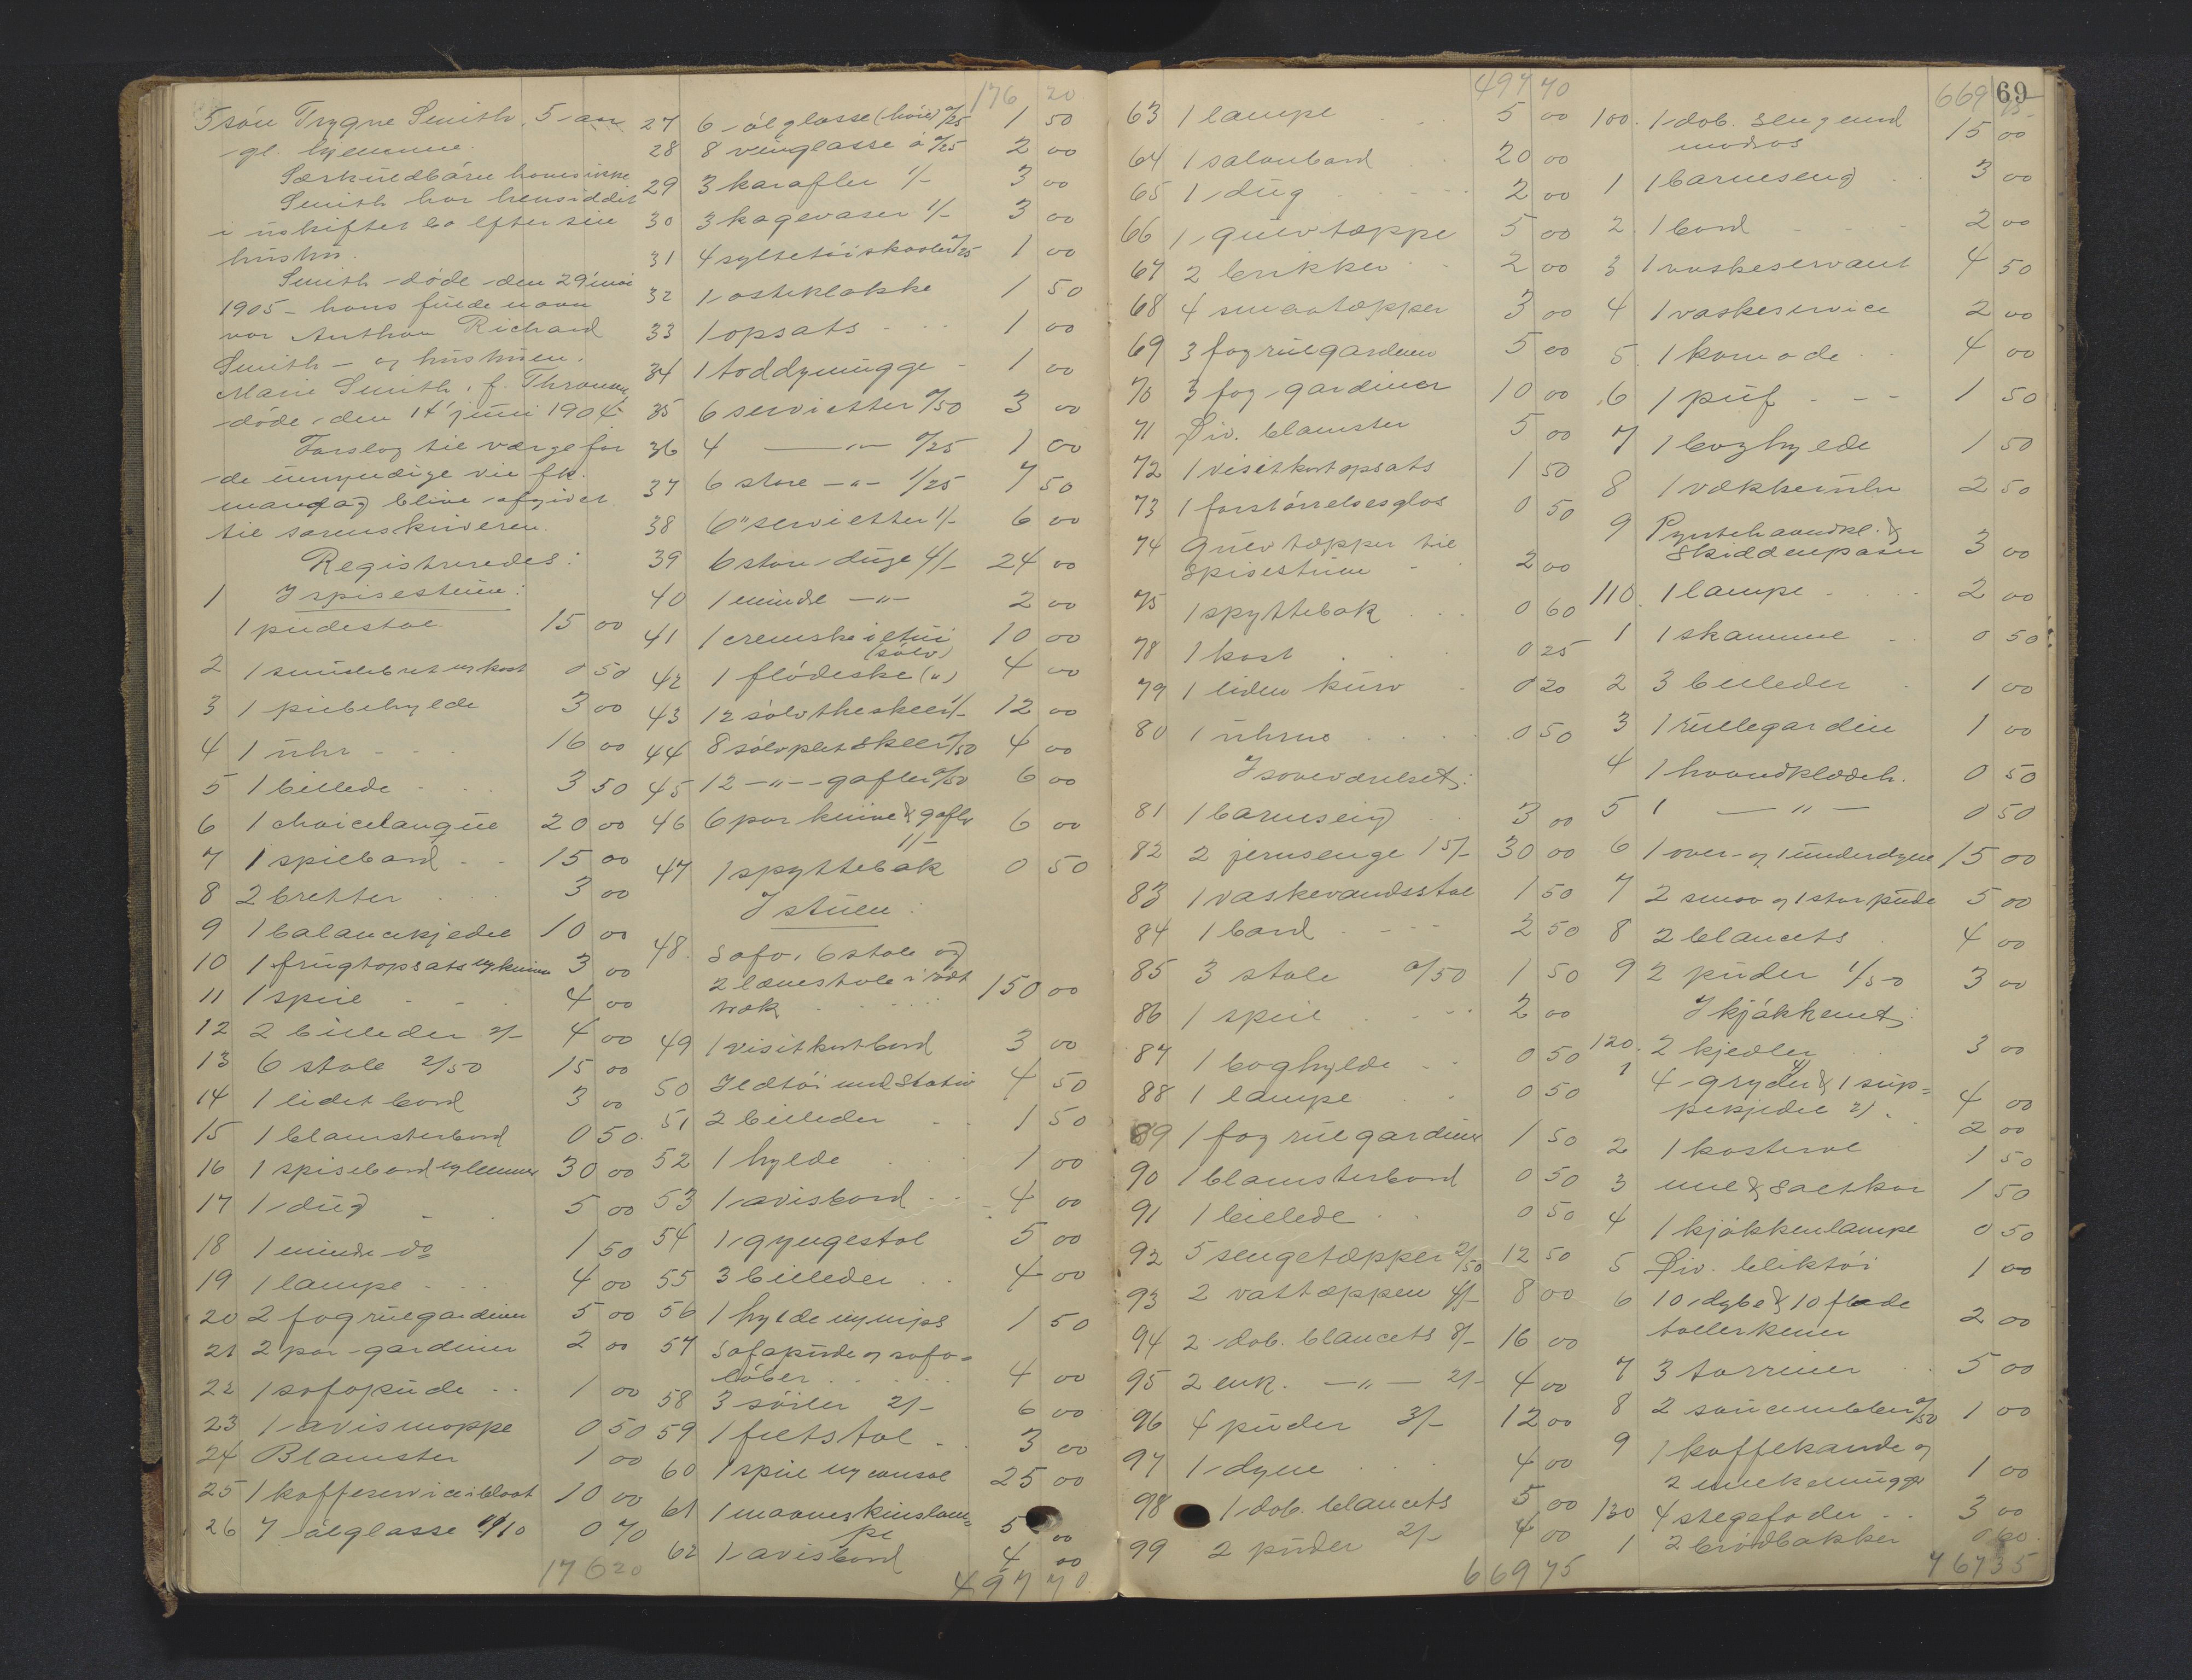 5 søn Trygve Smith, 5 aar
gl. hjemme.
Særkuldbørn haves ikke
Smith har hensiddet
i uskiftet bo efter sin
hustru.
Smith døde den 29' mai
1905 – hans fulde navn
var Anthon Richard
Smith – og hustruen,
Marie Smith, f.
døde den 14' juni 1904
Forslag til værge for
de umyndige vil fk.
mandag blive afgivet
til sorenskriveren.
Registreredes:
1 I spisestuen:
1 pudestol 15 00
2 1 smulebret og kost 0 50
3 1 pibehylde 3 00
4 1 uhr 16 00
5 1 billede 3 50
6 1 chaicelangue 20 00
7 1 spilbord 15 00
8 2 bretter 3 00
9 1 balancekjedel 10 00
10 1 frugtopsats og kniver 3 00
11 1 speil 4 00
12 2 billeder 2/- 4 00
13 6 stole 2/50 15 00
14 1 lidet bord 3 00
15 1 blomsterbord 0 50
16 1 spisebord og lemmer 30 00
17 1 dug 5 00
18 1 mindre do 1 50
19 1 lampe 4 00
20 2 fag rulgardiner 5 00
21 2 par gardiner 2 00
22 1 sofapude 1 00
23 1 avismappe 0 50
24 Blomster 1 00
25 1 kaffeservice i blaat 10 00
26 7 ølglasse 0/10 0 70
176 20
176 20
27 6 ølglasse (høie) 0/25 1 50
28 8 vinglasse à 0/25 2 00
29 3 karafler 1/- 3 00
30 3 kagevaser 1/- 3 00
31 4 syltetøiskaaler 0/25 1 00
32 1 osteklokke 1 50
33 1 opsats 1 00
34 1 toddymugge 1 00
35 6 servietter 0/50 3 00
36 4 — " — 0/25 1 00
37 6 store — " — 1/25 7 50
38 6 " servietter 1/- 6 00
39 6 store duge 4/- 24 00
40 1 mindre — " — 2 00
41 1 cremske i etui 10 00
(sølv)
42 1 flødeske (") 4 00
43 12 sølvtheskeer 1/- 12 00
44 8 sølvplet skeer 0/50 4 00
45 12 — " — gafler 0/50 6 00
46 6 par knive & gafler 6 00
1/-
47 1 spyttebak 0 50
I stuen:
48. Sofa, 6 stole og
2 lænestole i rødt
150 00
49 1 visitkortbord 3 00
50 Ildtøi med stativ 4 50
51 2 billeder 1 50
52 1 hylde 1 00
53 1 avisbord 4 00
54 1 gyngestol 5 00
55 3 billeder 4 00
56 1 hylde og nips 1 50
57 Sofapude og sofa-
løber 4 00
58 3 søiler 2/- 6 00
59 1 feltstol 3 00
60 1 speil og consol 25 00
61 1 maaneskinslam-
pe 5 00
62 1 avisbord 4 00
497 70
497 70
63 1 lampe 5 00
64 1 salonbord 20 00
65 1 dug 2 00
66 1 gulvtæppe 5 00
67 2 brikker 2 00
68 4 smaatæpper 3 00
69 3 fag rulgardiner 5 00
70 3 fag gardiner 10 00
71 Div. blomster 5 00
72 1 visitkortopsats 1 50
73 1 forstørrelsesglas 0 50
74 Gulvtæpper til
spisestuen 2 00
75 1 spyttebak 0 60
78 1 kost 0 25
79 1 liden kurv 0 20
80 1 0 50
I soveværelset:
81 1 barneseng 3 00
82 2 jernsenge 15/- 30 00
83 1 vaskevandsstol 1 50
84 1 bord 2 50
85 3 stole 0/50 1 50
86 1 speil 2 00
87 1 boghylde 0 50
88 1 lampe 0 50
89 1 fag rulgardiner 1 50
90 1 blomsterbord 0 50
91 1 billede 0 50
92 5 sengetæpper 2/50 12 50
93 2 vattæppen 4/- 8 00
94 2 dob. blancets 8/- 16 00
95 2 enk. — " — 2/- 4 00
96 4 puder 3/- 12 00
97 1 dyne 4 00
98 1 dob. blancets 5 00
99 2 puder 2/- 4 00
669 75
669 75
69
100. 1 dob. seng med
madras 15 00
1 1 barneseng 3 00
2. 1 bord 2 00
3 1 vaskeservant 4 50
4 1 vaskeservice 2 00
5. 1 komode 4 00
6 1 puf 1 50
7 1 boghylde 1 50
8 1 vækkeruhr 2 50
9 Pyntehaandkl. &
3 00
110. 1 lampe 2 00
1 1 skammel 0 50
2 3 billeder 1 00
3 1 rullegardin 1 00
4 1 haandklædeh. 0 50
5 1 — " — 0 50
6 1 over- og 1 underdyne 15 00
7 2 smaa og 1 stor pude 5 00
8 2 blancets 4 00
9 2 puder 1/50 3 00
I kjøkkenet:
120. 2 kjedler 3 00
1 4 gryder & 1 sup-
pekjedel 2/- 4 00
2 00
2 1 kosterol 1 50
3 mel & saltkar 1 50
4 1 kjøkkenlampe 0 50
5 Div. bliktøi 1 00
6 10 dybe & 10 flade
tallerkener 2 00
7 3 terriner 5 00
8 2 0/50 1 00
9 1 kaffekande og
2 melkemugger 1 00
130 4 stegefader 3 00
1 2 brødbakker 0 60
767 35